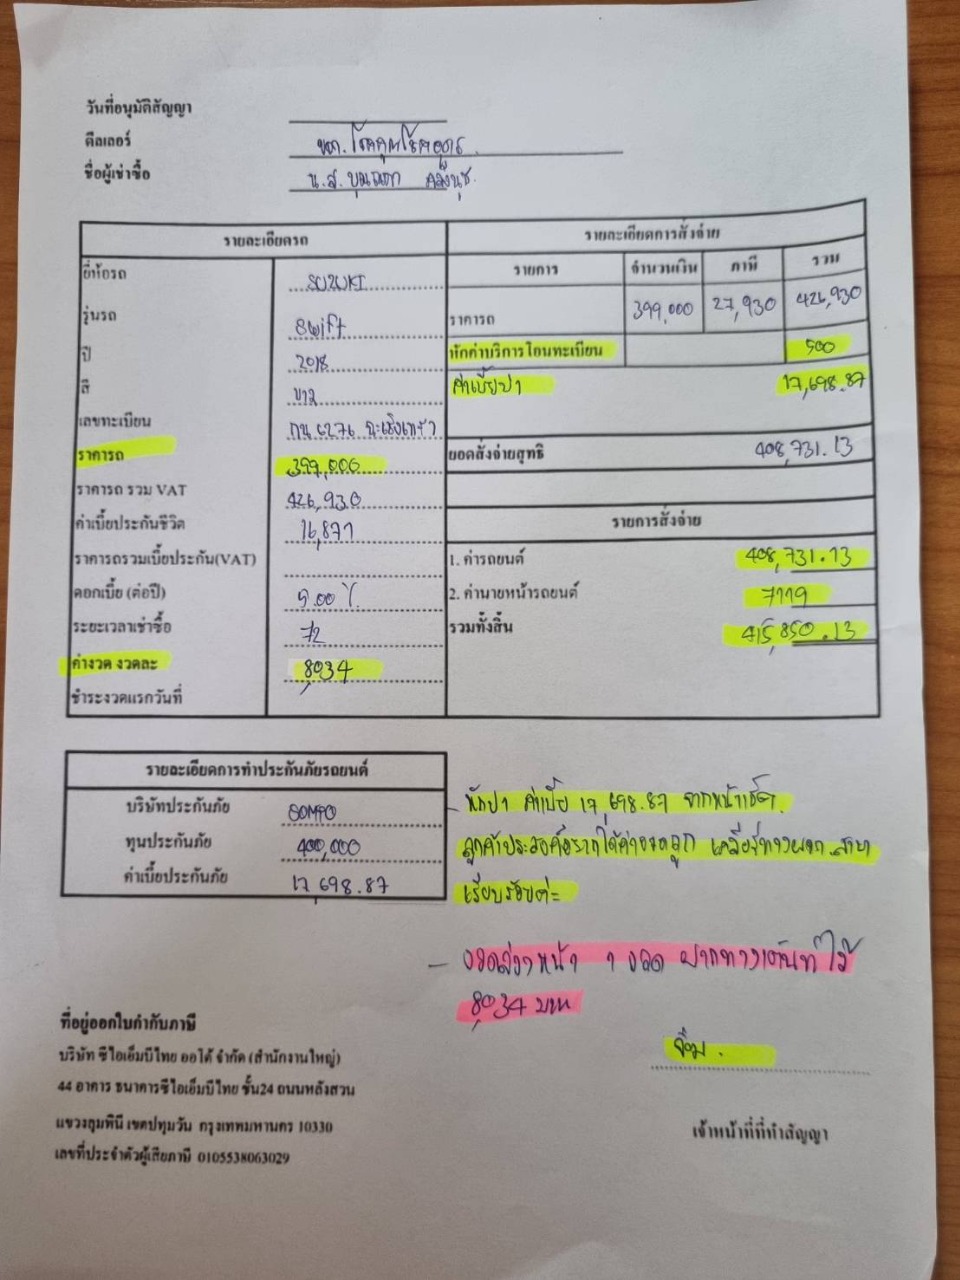 วันที่อนุมัติสัญญา
ดีลเลอร์ หจก. โชคคูณโชคอุดร
ชื่อผู้เช่าซื้อ น.ส.
รายละเอียดรถ
ยี่ห้อรถ SUZUKI
รุ่นรถ Swift
ปี 2018
สี ขาว
เลขทะเบียน กน 6276 ฉะเชิงเทรา
ราคารถ 399,000
ราคารถ รวม VAT 426,930
ค่าเบี้ยประกันชีวิต 16,877
ราคารถรวมเบี้ยประกัน(VAT)
ดอกเบี้ย (ต่อปี) 5.00 %
ระยะเวลาเช่าซื้อ 72
ค่างวด งวดละ 8,034
ชำระงวดแรกวันที่
รายละเอียดการสั่งจ่าย
รายการ จำนวนเงิน ภาษี รวม
ราคารถ 399,000 27,930 426,930
หักค่าบริการโอนทะเบียน 500
ค่าเบี้ยป1 17,698.87
ยอดสั่งจ่ายสุทธิ 408,731.13
รายการสั่งจ่าย
1. ค่ารถยนต์ 408,731.13
2. ค่านายหน้ารถยนต์ 7119
รวมทั้งสิ้น 415,850.13
รายละเอียดการทำประกันภัยรถยนต์
บริษัทประกันภัย SOMPO
ทุนประกันภัย 400,000
ค่าเบี้ยประกันภัย 17,698.87
- หักป1 ค่าเบี้ย 17,698.87 จากหน้าเช็ค.
ลูกค้าประสงค์อยากได้ค่างวดถูก เคลียร์ทาง สาขา
เรียบร้อยค่ะ
- งวดล่วงหน้า 1 งวด ฝากทางเต้นท์ไว้
8,034 บาท
จิ๋ม.
เจ้าหน้าที่ที่ทำสัญญา
ที่อยู่ออกใบกำกับภาษี
บริษัท ซีไอเอ็มบีไทย ออโต้ จำกัด (สำนักงานใหญ่)
44 อาคาร ธนาคารซีไอเอ็มบีไทย ชั้น24 ถนนหลังสวน
แขวงลุมพินี เขตปทุมวัน กรุงเทพมหานคร 10330
เลขที่ประจำตัวผู้เสียภาษี 0105538063029